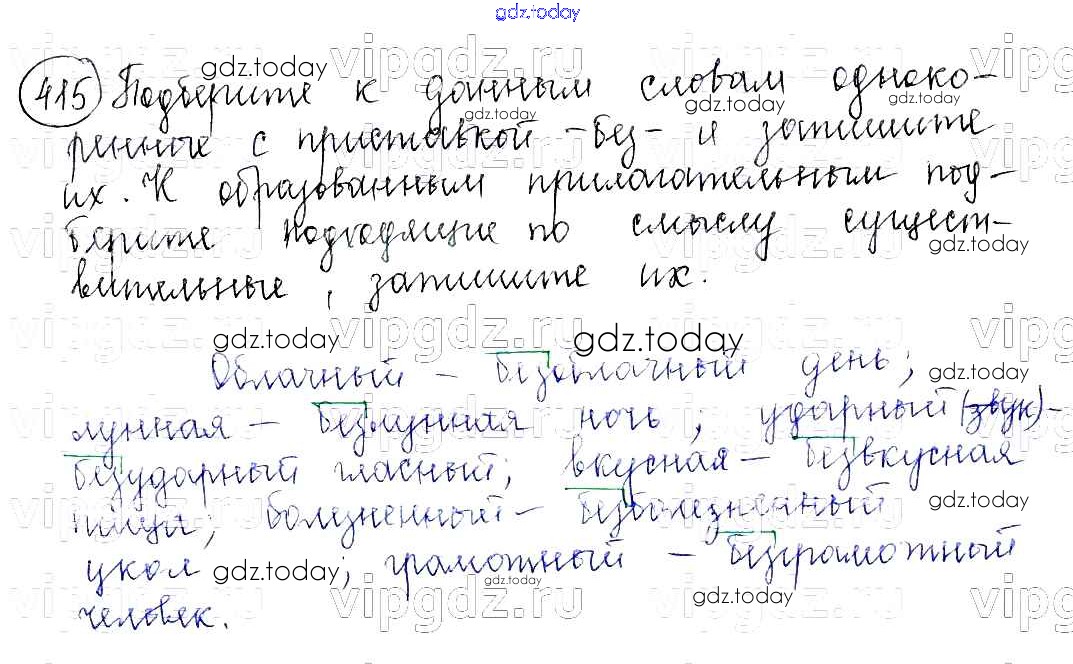 gdz.today
415 Подберите к данным словам одноко-
ренные с приставкой -без- и запишите
их. К образованным прилагательным под-
берите подходящие по смыслу сущест-
вительные, запишите их.
Облачный – безоблачный день;
лунная – безлунная ночь; ударный (звук) –
безударный гласный; вкусная – безвкусная
пища; болезненный – безболезненный
укол; грамотный – безграмотный
человек.